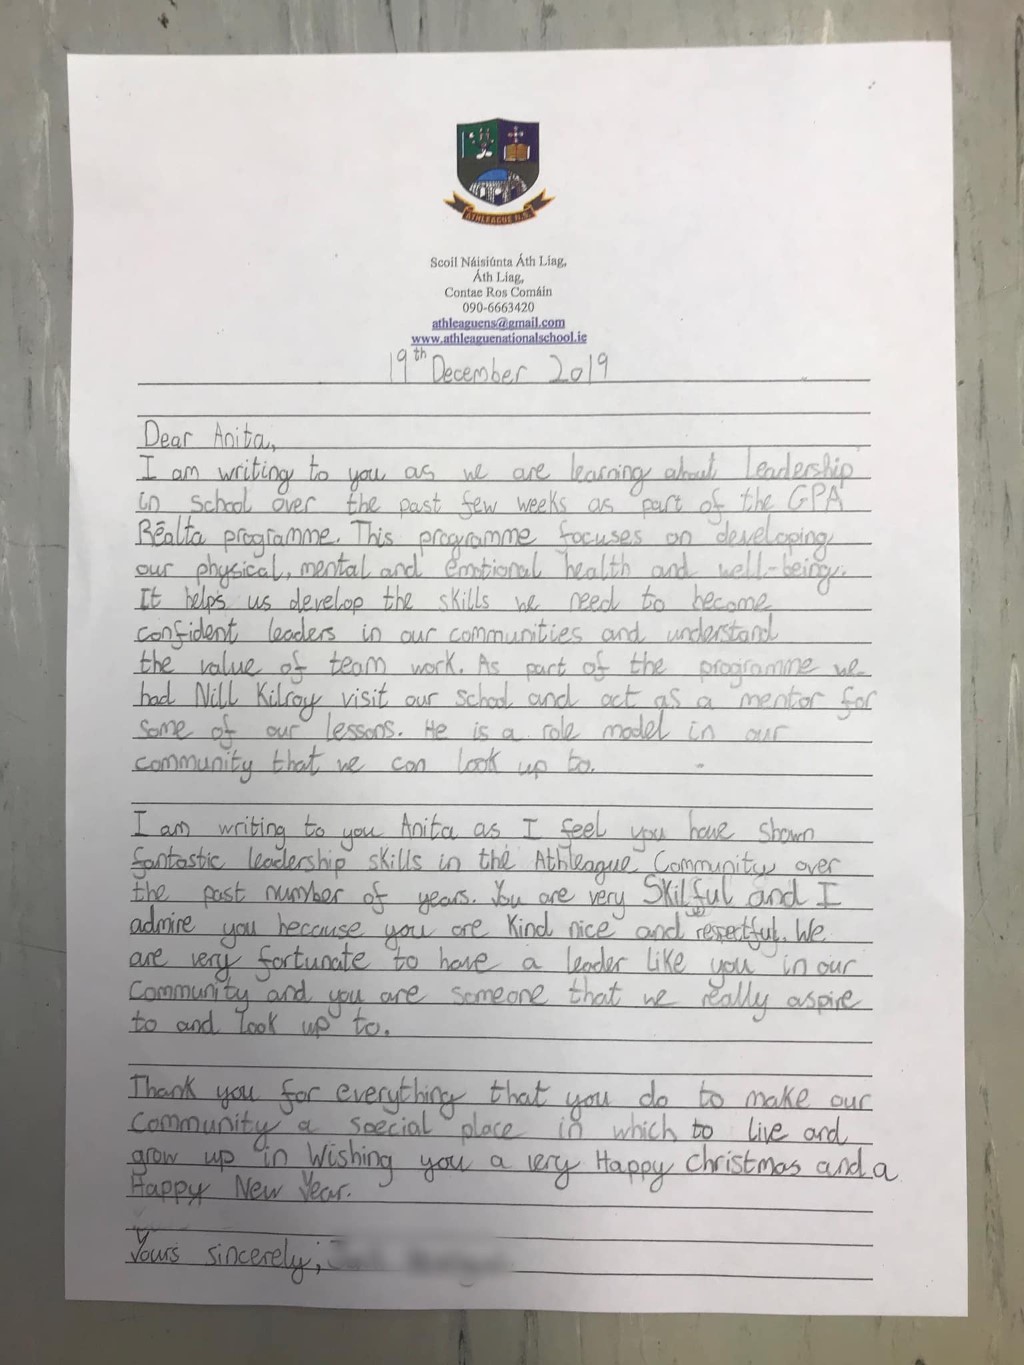 ATHLEAGUE N.S.
Scoil Náisiúnta Áth Liag,
Áth Liag,
Contae Ros Comáin
090-6663420
athleaguens@gmail.com
www.athleaguenationalschool.ie
19th December 2019
Dear Anita,
I am writing to you as we are learning about Leadership
in school over the past few weeks as part of the GPA
Réalta programme. This programme focuses on developing
our physical, mental and emotional health and well-being.
It helps us develop the skills we need to become
confident leaders in our communities and understand
the value of team work. As part of the programme we
had Nill Kilroy visit our school and act as a mentor for
some of our lessons. He is a role model in our
community that we can look up to.
I am writing to you Anita as I feel you have shown
fantastic leadership skills in the Athleague Community over
the past number of years. You are very Skilful and I
admire you because you are Kind nice and respectful. We
are very fortunate to have a leader like you in our
Community and you are someone that we really aspire
to and look up to.
Thank you for everything that you do to make our
Community a special place in which to live and
grow up in Wishing you a very Happy Christmas and a
Happy New Year.
Yours sincerely,